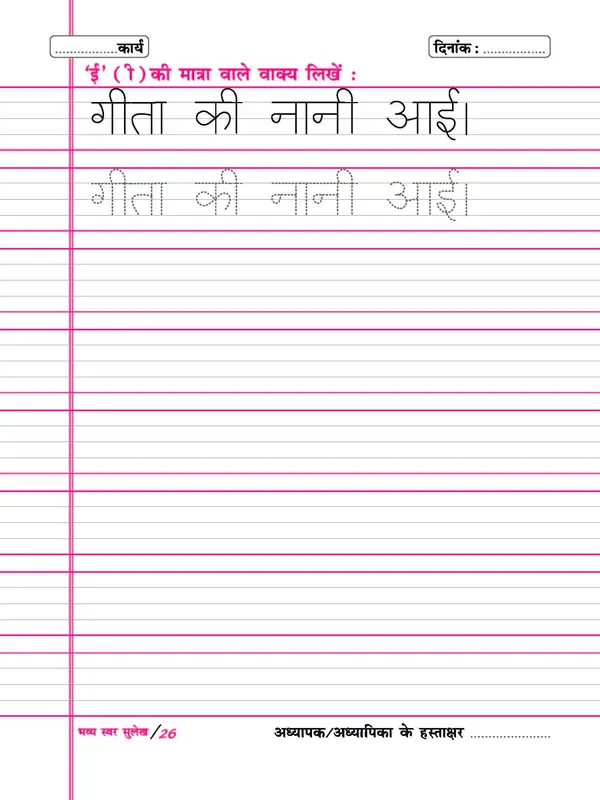 .................कार्य
दिनांक : .................
‘ई’ ( ी ) की मात्रा वाले वाक्य लिखें :
गीता की नानी आई।
गीता की नानी आई।
भव्य स्वर सुलेख/26
अध्यापक/अध्यापिका के हस्ताक्षर .....................